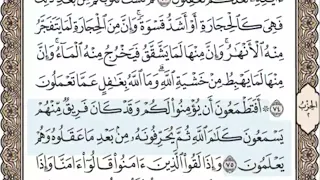 فَهِيَ كَالْحِجَارَةِ أَوْ أَشَدُّ قَسْوَةً ۚ وَإِنَّ مِنَ الْحِجَارَةِ لَمَا يَتَفَجَّرُ
مِنْهُ الْأَنْهَٰرُ ۚ وَإِنَّ مِنْهَا لَمَا يَشَّقَّقُ فَيَخْرُجُ مِنْهُ الْمَآءُ ۚ وَإِنَّ
مِنْهَا لَمَا يَهْبِطُ مِنْ خَشْيَةِ اللَّهِ ۗ وَمَا اللَّهُ بِغَٰفِلٍ عَمَّا تَعْمَلُونَ
٧٤ ۞ أَفَتَطْمَعُونَ أَن يُؤْمِنُوا لَكُمْ وَقَدْ كَانَ فَرِيقٌ مِّنْهُمْ
يَسْمَعُونَ كَلَٰمَ اللَّهِ ثُمَّ يُحَرِّفُونَهُۥ مِنۢ بَعْدِ مَا عَقَلُوهُ وَهُمْ
يَعْلَمُونَ ٧٥ وَإِذَا لَقُوا الَّذِينَ ءَامَنُوا قَالُوٓا ءَامَنَّا وَإِذَا
الحزب
٢